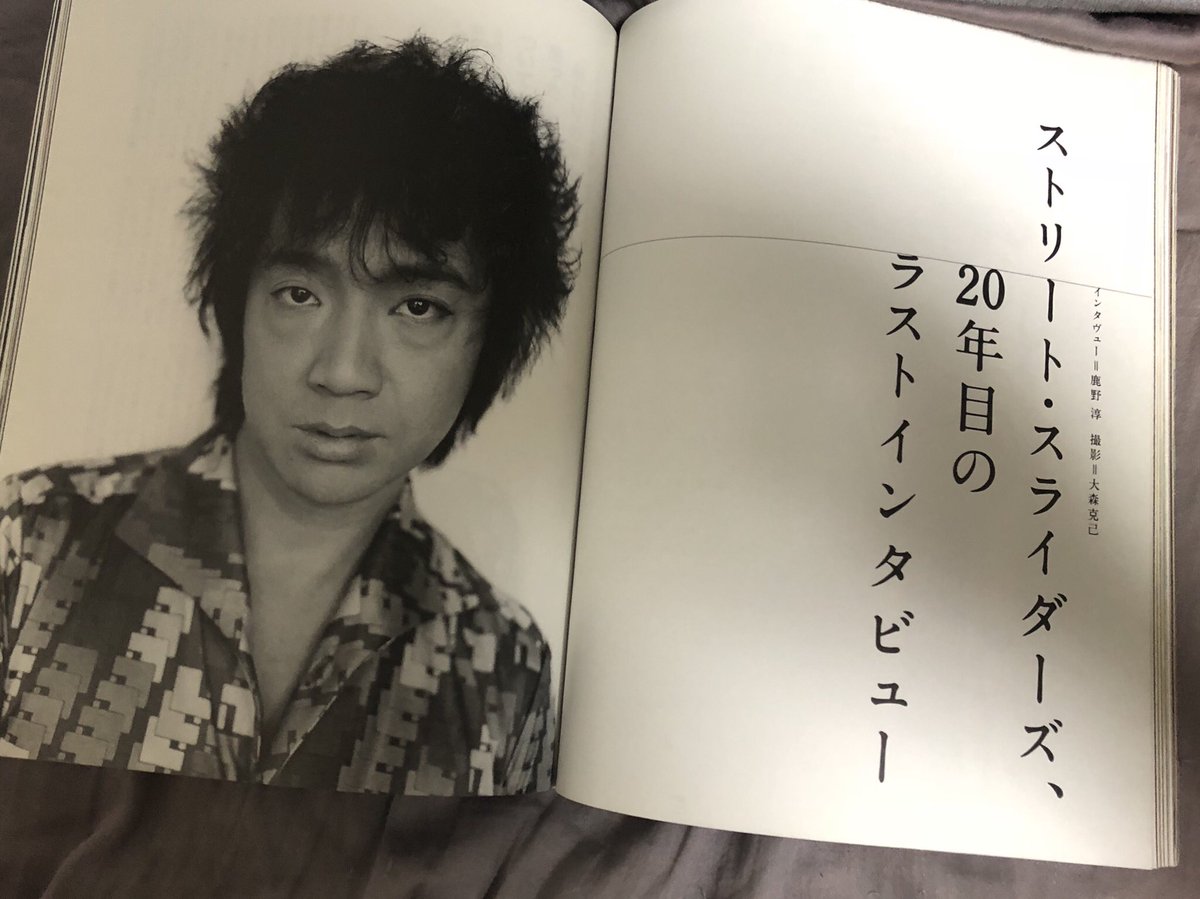 インタヴュー＝鹿野 淳 撮影＝大森克己
ストリート・スライダーズ、
20年目の
ラストインタビュー